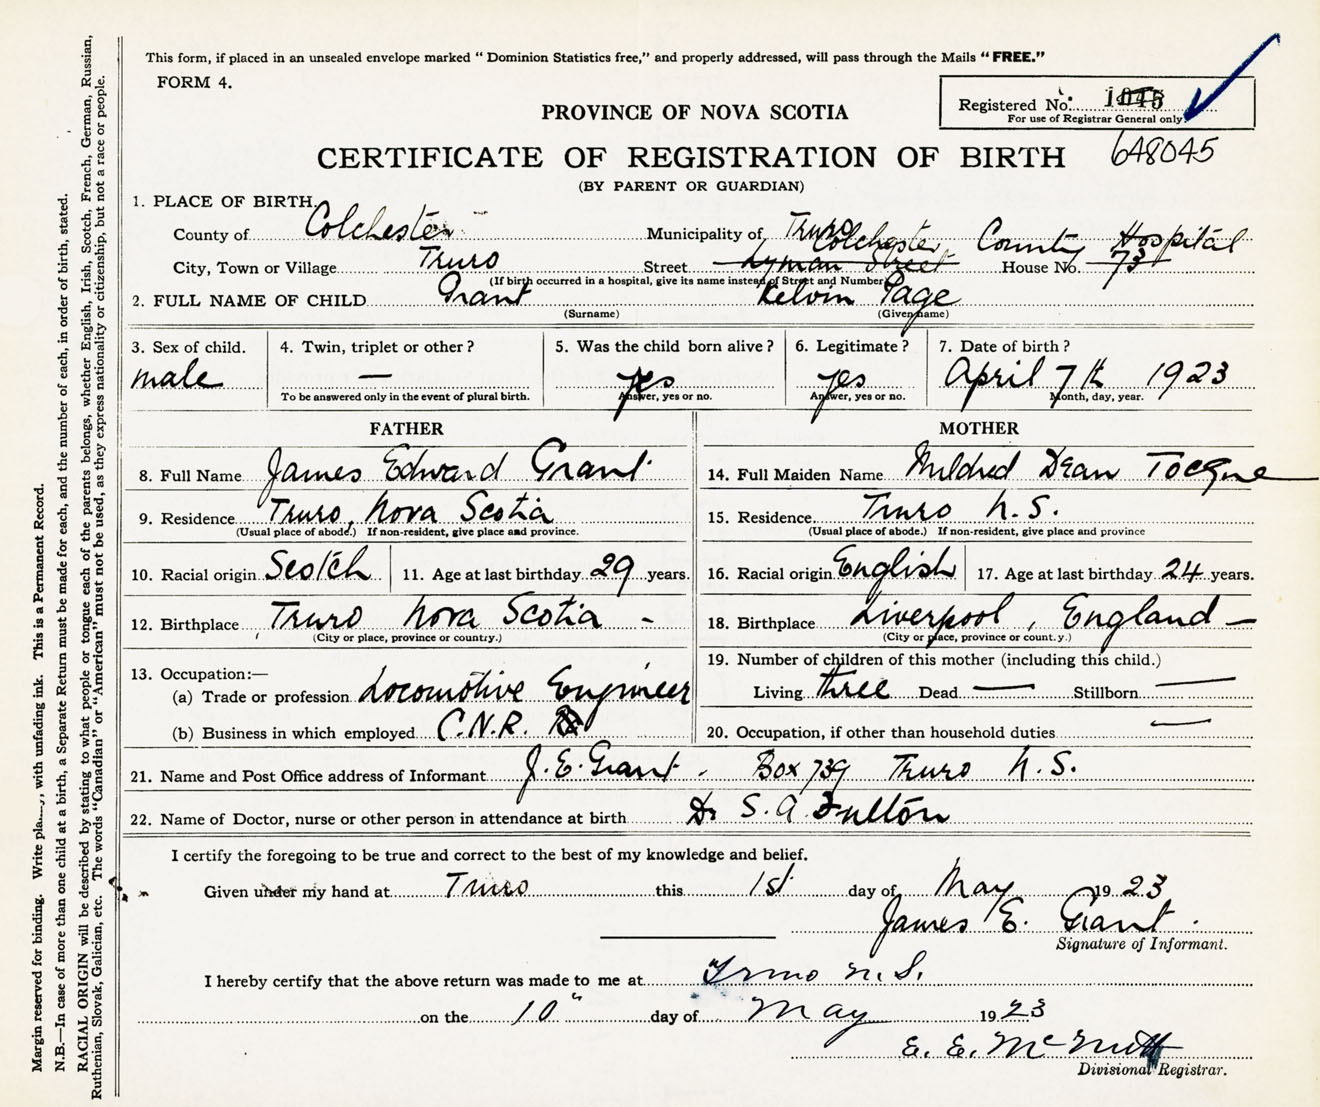 This form, if placed in an unsealed envelope marked “ Dominion Statistics free,” and properly addressed, will pass through the Mails “ FREE.”
FORM 4.
Registered No. 1045
For use of Registrar General only.
PROVINCE OF NOVA SCOTIA
648045
CERTIFICATE OF REGISTRATION OF BIRTH
(BY PARENT OR GUARDIAN)
1. PLACE OF BIRTH.
County of Colchester Municipality of Truro
Colchester County Hospital
City, Town or Village Truro Street Lyman Street House No. 73
(If birth occurred in a hospital, give its name instead of Street and Number)
2. FULL NAME OF CHILD Grant Kelvin Page
(Surname) (Given name)
3. Sex of child. 4. Twin, triplet or other ? 5. Was the child born alive ? 6. Legitimate ? 7. Date of birth ?
male — yes yes April 7th 1923
To be answered only in the event of plural birth. Answer, yes or no. Answer, yes or no. Month, day, year.
FATHER MOTHER
8. Full Name James Edward Grant 14. Full Maiden Name Mildred Dean Tocque
9. Residence Truro, Nova Scotia 15. Residence Truro N.S.
(Usual place of abode.) If non-resident, give place and province. (Usual place of abode.) If non-resident, give place and province
10. Racial origin Scotch 11. Age at last birthday 29 years. 16. Racial origin English 17. Age at last birthday 24 years.
12. Birthplace Truro Nova Scotia - 18. Birthplace Liverpool, England —
(City or place, province or country.) (City or place, province or count.y.)
13. Occupation:— 19. Number of children of this mother (including this child.)
(a) Trade or profession Locomotive Engineer Living three Dead — Stillborn —
(b) Business in which employed C.N.R. 20. Occupation, if other than household duties —
21. Name and Post Office address of Informant J. E. Grant - Box 739 Truro N.S.
22. Name of Doctor, nurse or other person in attendance at birth Dr S. A. Fulton
I certify the foregoing to be true and correct to the best of my knowledge and belief.
Given under my hand at Truro this 1st day of May 1923
James E. Grant.
Signature of Informant.
I hereby certify that the above return was made to me at Truro N.S.
on the 10" day of May 1923
E. E. McNutt
Divisional Registrar.
Margin reserved for binding. Write pla....y, with unfading ink. This is a Permanent Record.
N.B.—In case of more than one child at a birth, a Separate Return must be made for each, and the number of each, in order of birth, stated.
RACIAL ORIGIN will be described by stating to what people or tongue each of the parents belongs, whether English, Irish, Scotch, French, German, Russian,
Ruthenian, Slovak, Galician, etc. The words “Canadian” or “American” must not be used, as they express nationality or citizenship, but not a race or people.